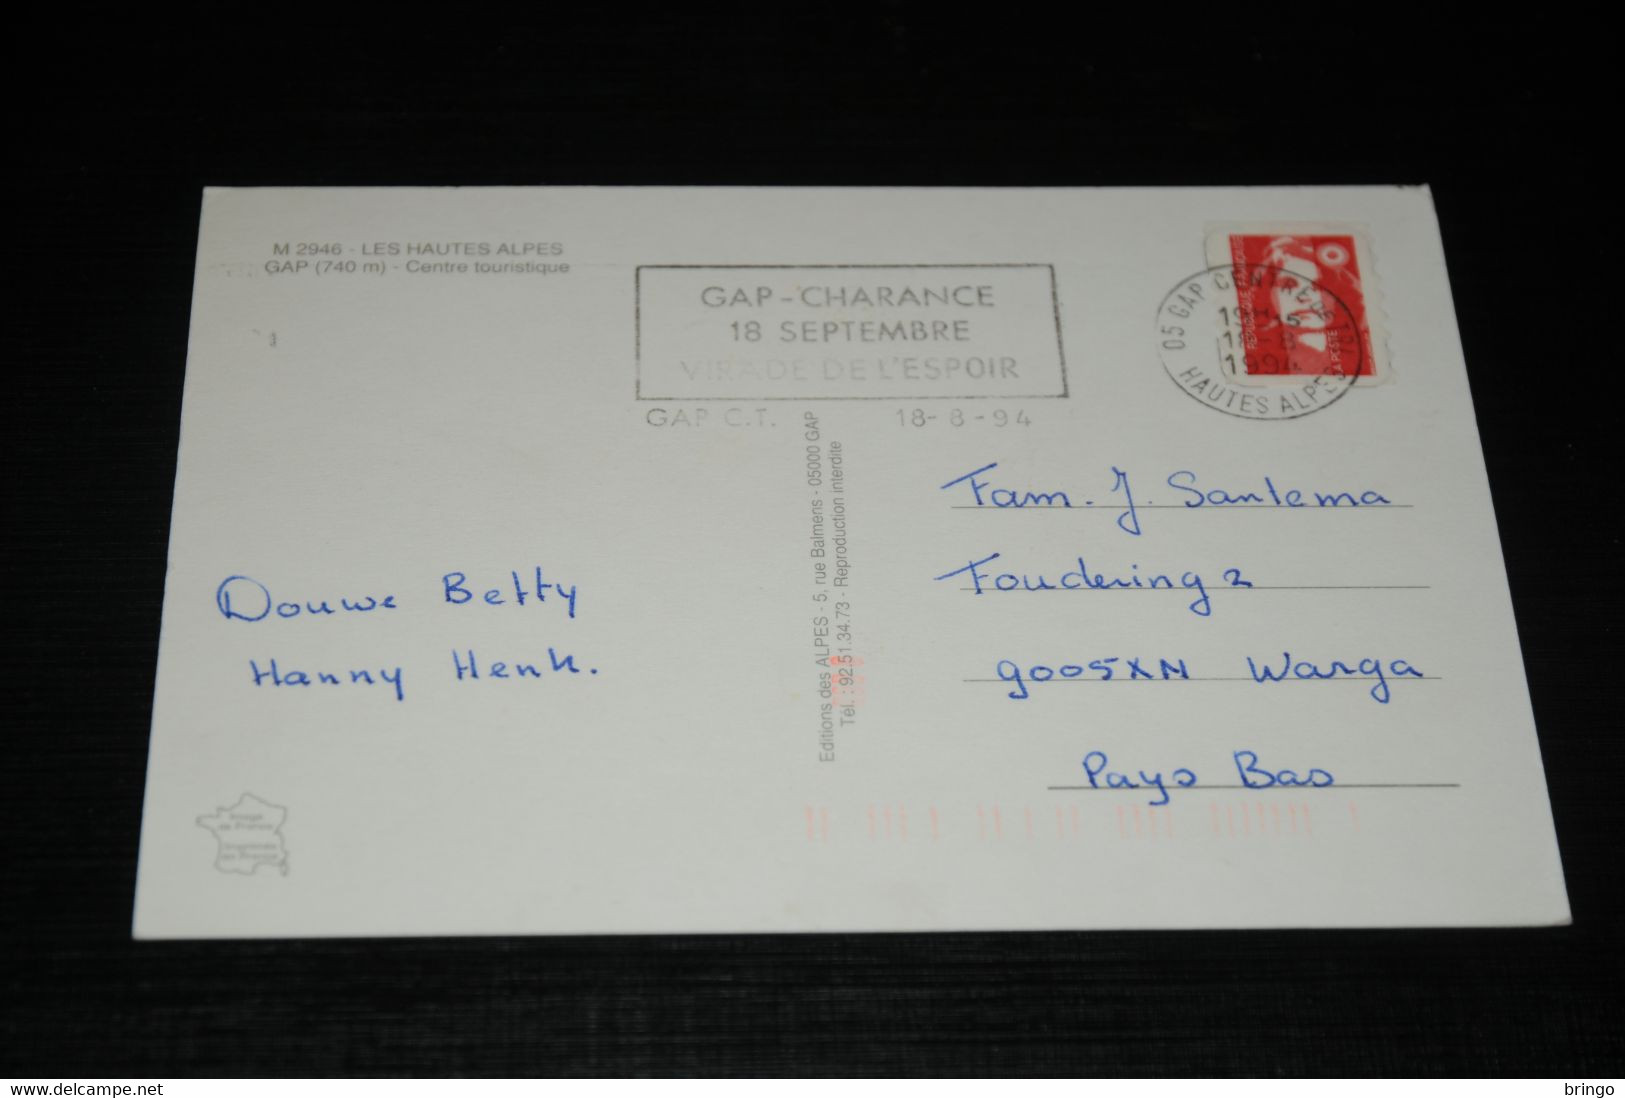 M 2946 - LES HAUTES ALPES
GAP (740 m) - Centre touristique
GAP - CHARANCE
18 SEPTEMBRE
VIRADE DE L'ESPOIR
GAP C.T. 18-8-94
05 GAP CONTRE
1994
HAUTES ALPES
REPUBLIQUE FRANÇAISE
LA POSTE
Editions des ALPES - 5, rue Balmens - 05000 GAP
Tél. : 92.51.34.73 - Reproduction interdite
Fam. J. Santema
Foudering 2
9005XN Warga
Pays Bas
Douwe Betty
Hanny Henk.
Image
de France
Imprimée
en France
delcampe.net
bringo